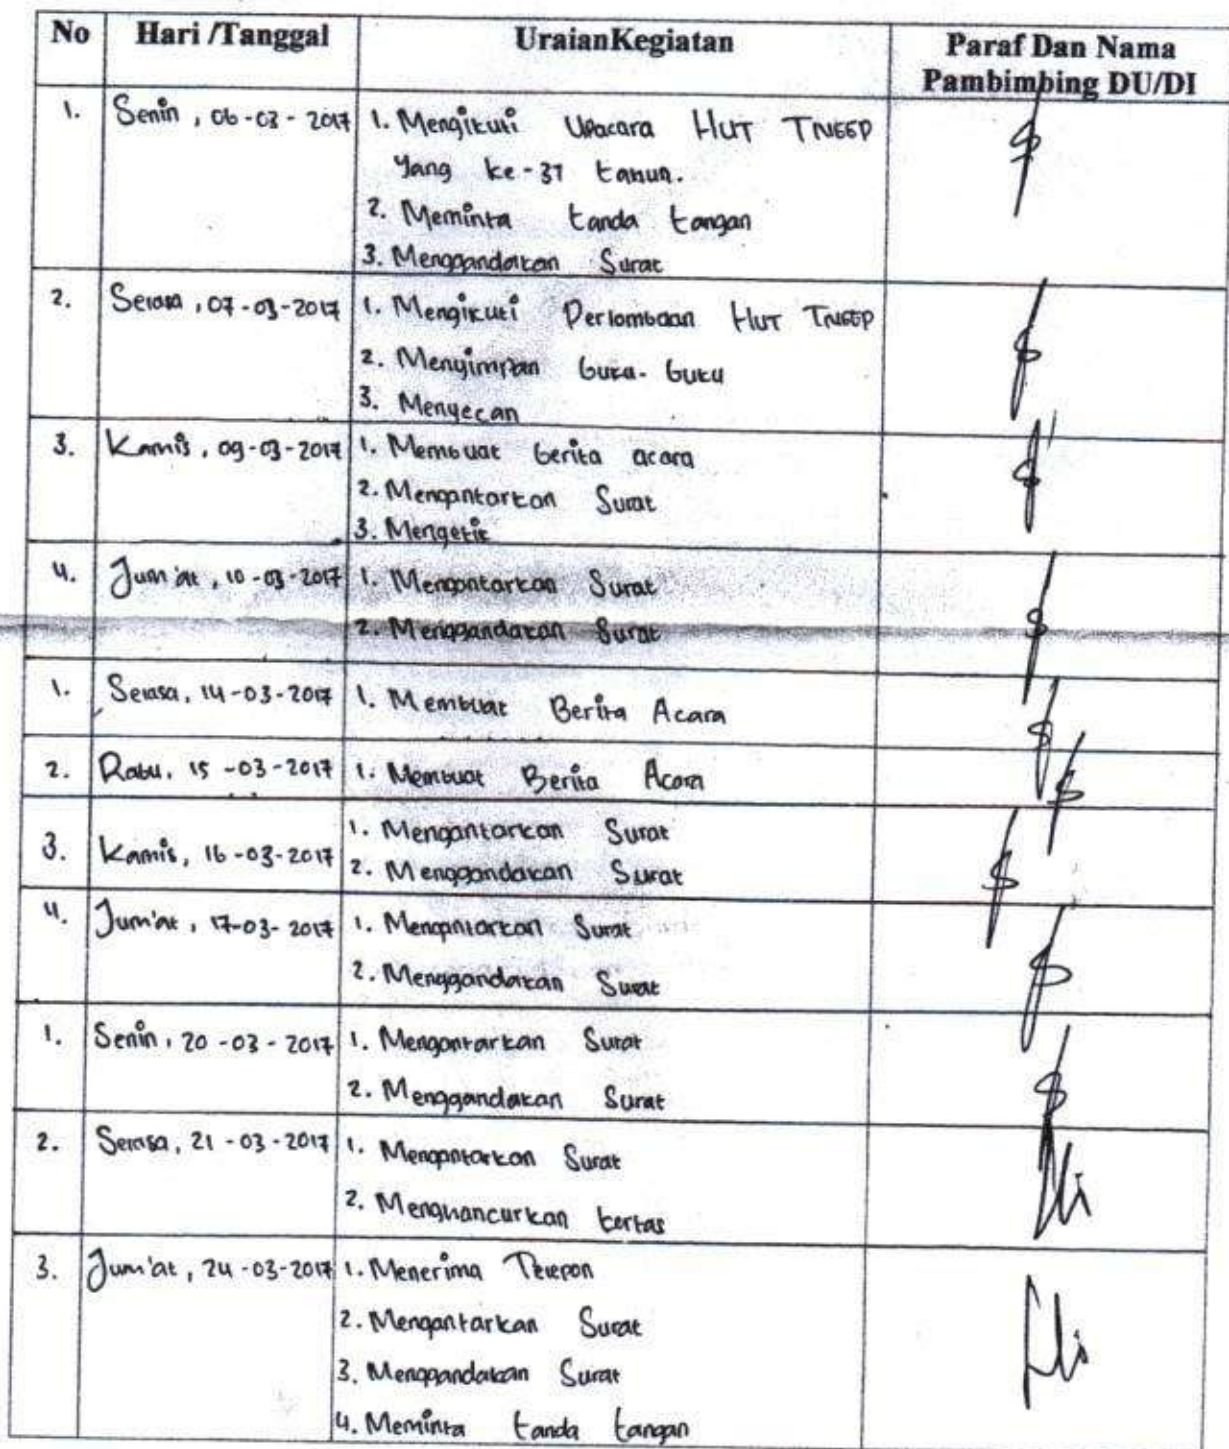 No Hari /Tanggal UraianKegiatan Paraf Dan Nama
Pambimbing DU/DI
1. Senin, 06-03-2017 1. Mengikuti Upacara HUT TNGGP
yang ke-37 tahun.
2. Meminta tanda tangan
3. Menggandakan Surat
2. Selasa, 07-03-2017 1. Mengikuti Perlombaan HUT TNGGP
2. Menyimpan buku-buku
3. Menyecan
3. Kamis, 09-03-2017 1. Membuat berita acara
2. Mengantarkan Surat
3. Mengetik
4. Jum'at, 10-03-2017 1. Mengantarkan Surat
2. Menggandakan Surat
1. Selasa, 14-03-2017 1. Membuat Berita Acara
2. Rabu, 15-03-2017 1. Membuat Berita Acara
3. Kamis, 16-03-2017 1. Mengantarkan Surat
2. Menggandakan Surat
4. Jum'at, 17-03-2017 1. Mengantarkan Surat
2. Menggandakan Surat
1. Senin, 20-03-2017 1. Mengantarkan Surat
2. Menggandakan Surat
2. Selasa, 21-03-2017 1. Mengantarkan Surat
2. Menghancurkan kertas
3. Jum'at, 24-03-2017 1. Menerima Telepon
2. Mengantarkan Surat
3. Menggandakan Surat
4. Meminta tanda tangan